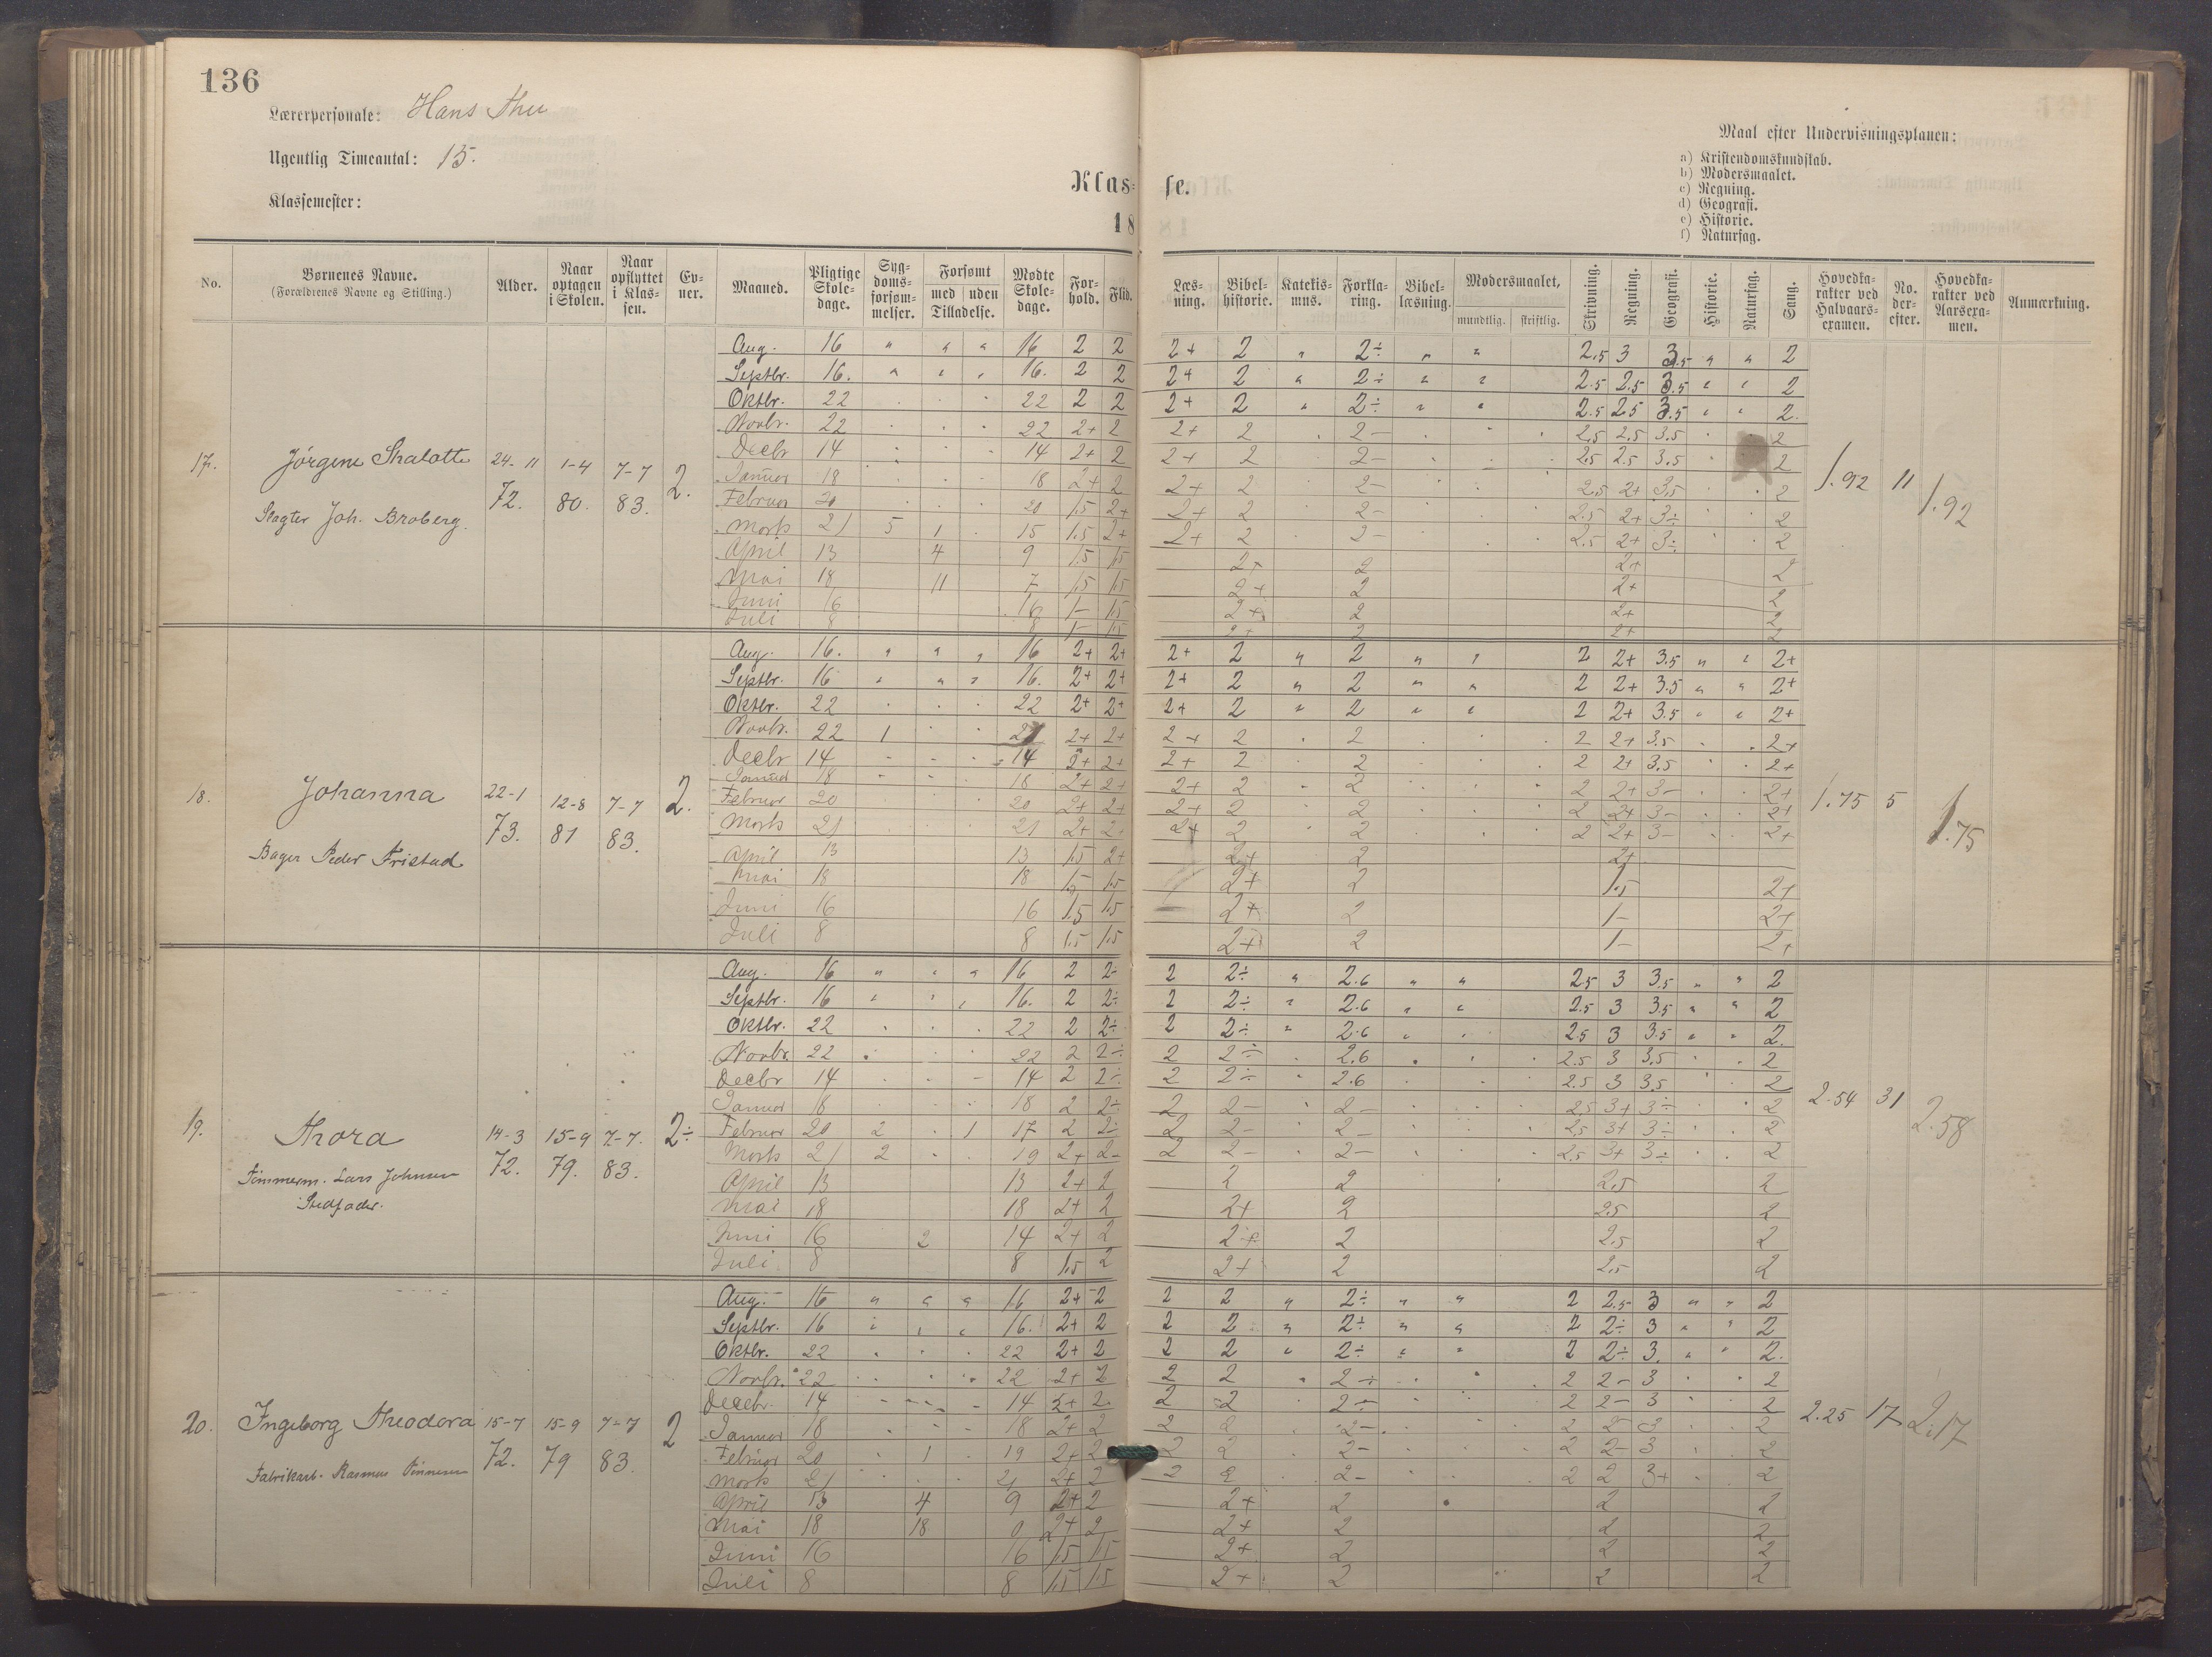 136
Lærerpersonale: Hans Thu
Ugentlig Timeantal: 15.
Klassemester:
Klasse.
18
Maal efter Undervisningsplanen:
a) Kristendomskundskab.
b) Modersmaalet.
c) Regning.
d) Geografi.
e) Historie.
f) Naturfag.
No. | Børnenes Navne. (Forældrenes Navne og Stilling.) | Alder. | Naar optagen i Skolen. | Naar opflyttet i Klassen. | Evner. | Maaned. | Pligtige Skoledage. | Sygdomsforsømmelser. | Forsømt med uden Tilladelse. | Mødte Skoledage. | Forhold. | Flid. | Læsning. | Bibelhistorie. | Katekismus. | Forklaring. | Bibellæsning. | Modersmaalet, mundtlig. skriftlig. | Skrivning. | Regning. | Geografi. | Historie. | Naturfag. | Sang. | Hovedkarakter ved Halvaarsexamen. | No. derefter. | Hovedkarakter ved Aarsexamen. | Anmærkning.
17. Jörgine Skalotte 24-11 72. 1-4 80. 7-7 83. 2. 1.92 11 1.92
Slagter Joh. Broberg.
Aug. 16 " " " 16 2 2 2+ 2 " 2÷ " " 2.5 3 3.5 " " 2
Septbr. 16. " " " 16. 2 2 2+ 2 " 2÷ " " 2.5 2.5 3.5 " " 2
Oktbr. 22 22 2 2 2+ 2 " 2÷ " " 2.5 25 3.5 " " 2.
Novbr. 22 22 2+ 2 2+ 2 2- 2.5 2.5 3.5 2
Decbr 14 14 2+ 2 2+ 2 2- 2.5 2.5 3.5 2
Januar 18 18 2+ 2 2+ 2 2- 2.5 2+ 3.5 2
Februar 20 20 1.5 2+ 2+ 2 2- 2.5 2+ 3÷ 2
Marts 21 5 1 15 1.5 2+ 2+ 2 2- 2.5 2+ 3÷ 2
April 13 4 9 1.5 1.5 2+ 2 2+ 2
Mai 18 11 7 1.5 1.5 2+ 2 2+ 2
Juni 16 16 1- 1.5 2+ 2 2+ 2
Juli 8 8 1- 1.5 2+ 2 2+ 2
18. Johanna 22-1 73. 12-8 81 7-7 83. 2. 1.75 5 1.75
Bager Peder Tristad
Aug. 16. " " " 16 2+ 2+ 2+ 2 " 2 " " 2 2+ 3.5 " " 2+
Septbr. 16 " " " 16. 2+ 2+ 2+ 2 " 2 " " 2 2+ 3.5 " " 2+
Oktbr. 22 22 2+ 2+ 2+ 2 " 2 " " 2 2+ 3.5 " " 2+
Novbr. 22 1 21 2+ 2+ 2+ 2 2 2 2+ 3.5 2+
Decbr 14 14 2+ 2+ 2+ 2 2 2 2+ 3.5 2+
Januar 18 18 2+ 2+ 2+ 2 2 2 2+ 3- 2+
Februar 20 20 2+ 2+ 2+ 2 2 2 2+ 3- 2+
Marts 21 21 2+ 2+ 2+ 2 2 2 2+ 3- 2+
April 13 13 1.5 2+ 2+ 2 2+
Mai 18 18 1.5 1.5 2+ 2 1.5 2+
Juni 16 16 1.5 1.5 2+ 2 1- 2+
Juli 8 8 1.5 1.5 2+ 2 1- 2+
19. Thora 14-3 72. 15-9 79. 7-7. 83. 2÷ 2.54 31 2.58
Tømmerm. Lars Johnsen
Stedfader.
Aug. 16 " " " 16 2 2÷ 2 2÷ " 2.6 " " 2.5 3 3.5 " " 2
Septbr. 16 " " " 16. 2 2÷ 2 2÷ " 2.6 " " 2.5 3 3.5 " " 2
Oktbr. 22 22 2 2÷ 2 2÷ " 2.6 " 2.5 3 3.5 " " 2.
Novbr. 22 22 2 2÷ 2 2÷ 2.6 2.5 3 3.5 2
Decbr 14 14 2 2÷ 2 2÷ 2.6 2.5 3 3.5 2
Januar 18 18 2 2÷ 2 2- 2- 2.5 3+ 3÷ 2
Februar 20 2 1 17 2 2÷ 2 2- 2- 2.5 3+ 3÷ 2
Marts 21 2 19 2+ 2- 2 2- 2- 2.5 3+ 3÷ 2
April 13 13 2+ 2 2 2 2.5 2
Mai 18 18 2+ 2 2+ 2 2.5 2
Juni 16 2 14 2+ 2 2+ 2 2.5 2
Juli 8 8 1.5 2 2+ 2 2.5 2
20. Ingeborg Theodora 15-7 72. 15-9 79 7-7 83. 2 2.25 17 2.17
Fabrikarb. Rasmus
Aug. 16 " " " 16 2+ 2 2 2 " 2÷ " " 2 2.5 3 " " 2
Septbr. 16 " " " 16. 2+ 2 2 2 " 2÷ " " 2 2÷ 3 " " 2
Oktbr. 22 22 2+ 2 2 2 " 2÷ " " 2 2÷ 3. " " 2.
Novbr. 22 22 2+ 2 2 2 2÷ 2 2- 3 2
Decbr. 14 14 2+ 2. 2 2 2÷ 2 2- 3 2
Januar 18 18 2+ 2 2 2 2- 2 2- 3 2
Februar 20 1 19 2+ 2 2 2 2- 2 2- 3 2
Marts 21 21 2+ 2 2 2 2- 2 2 3+ 2
April 13 4 9 2+ 2 2+ 2 2 2
Mai 18 18 0 2+ 2 2+ 2 2 2
Juni 16 16 1.5 1.5 2+ 2 2 2
Juli 8 8 1.5 1.5 2+ 2 2 2